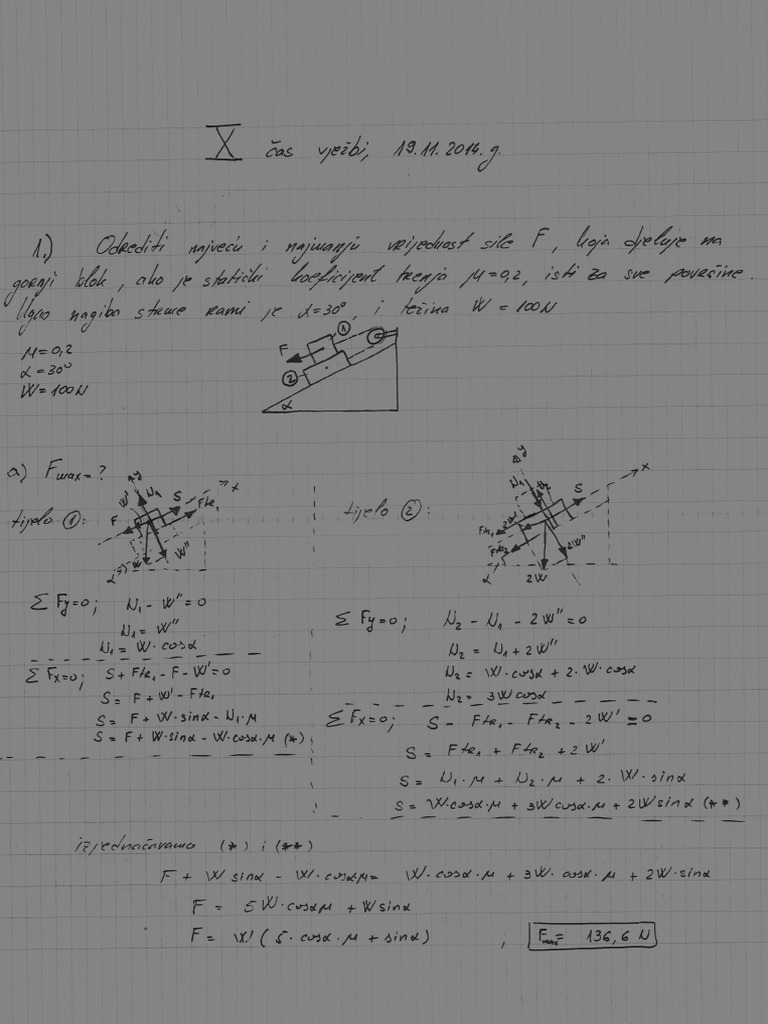 X čas vježbi, 19.11.2014. g.
1.) Odrediti najveću i najmanju vrijednost sile F, koja djeluje na
gornji blok, ako je statički koeficijent trenja μ=0,2, isti za sve površine.
Ugao nagiba strme ravni je α=30°, i težina W = 100N
μ=0,2
α=30°
W=100N
F
1
2
α
a) Fmax=?
tijelo ①:
y
W'
N1
S
x
F
Ftr1
W''
W
α
tijelo ②:
y
N1
N2
S
x
2W'
Ftr1
Ftr2
2W''
α
2W
ΣFy=0; N1 - W''=0
N1 = W''
N1 = W·cosα
ΣFx=0; S+Ftr1-F-W'=0
S = F+W'-Ftr1
S = F+W·sinα-N1·μ
S = F+W·sinα-W·cosα·μ (*)
ΣFy=0; N2 - N1 - 2W''=0
N2 = N1+2W''
N2 = W·cosα+2·W·cosα
N2 = 3Wcosα
ΣFx=0; S - Ftr1 - Ftr2 - 2W' = 0
S = Ftr1 + Ftr2 + 2W'
S = N1·μ + N2·μ + 2·W·sinα
S = W·cosα·μ + 3Wcosα·μ + 2Wsinα (**)
izjednačavamo (*) i (**)
F + W sinα - W·cosαμ = W·cosα·μ + 3W·cosα·μ + 2W·sinα
F = 5W·cosαμ + Wsinα
F = W(5·cosα·μ + sinα) ; Fmax= 136,6 N